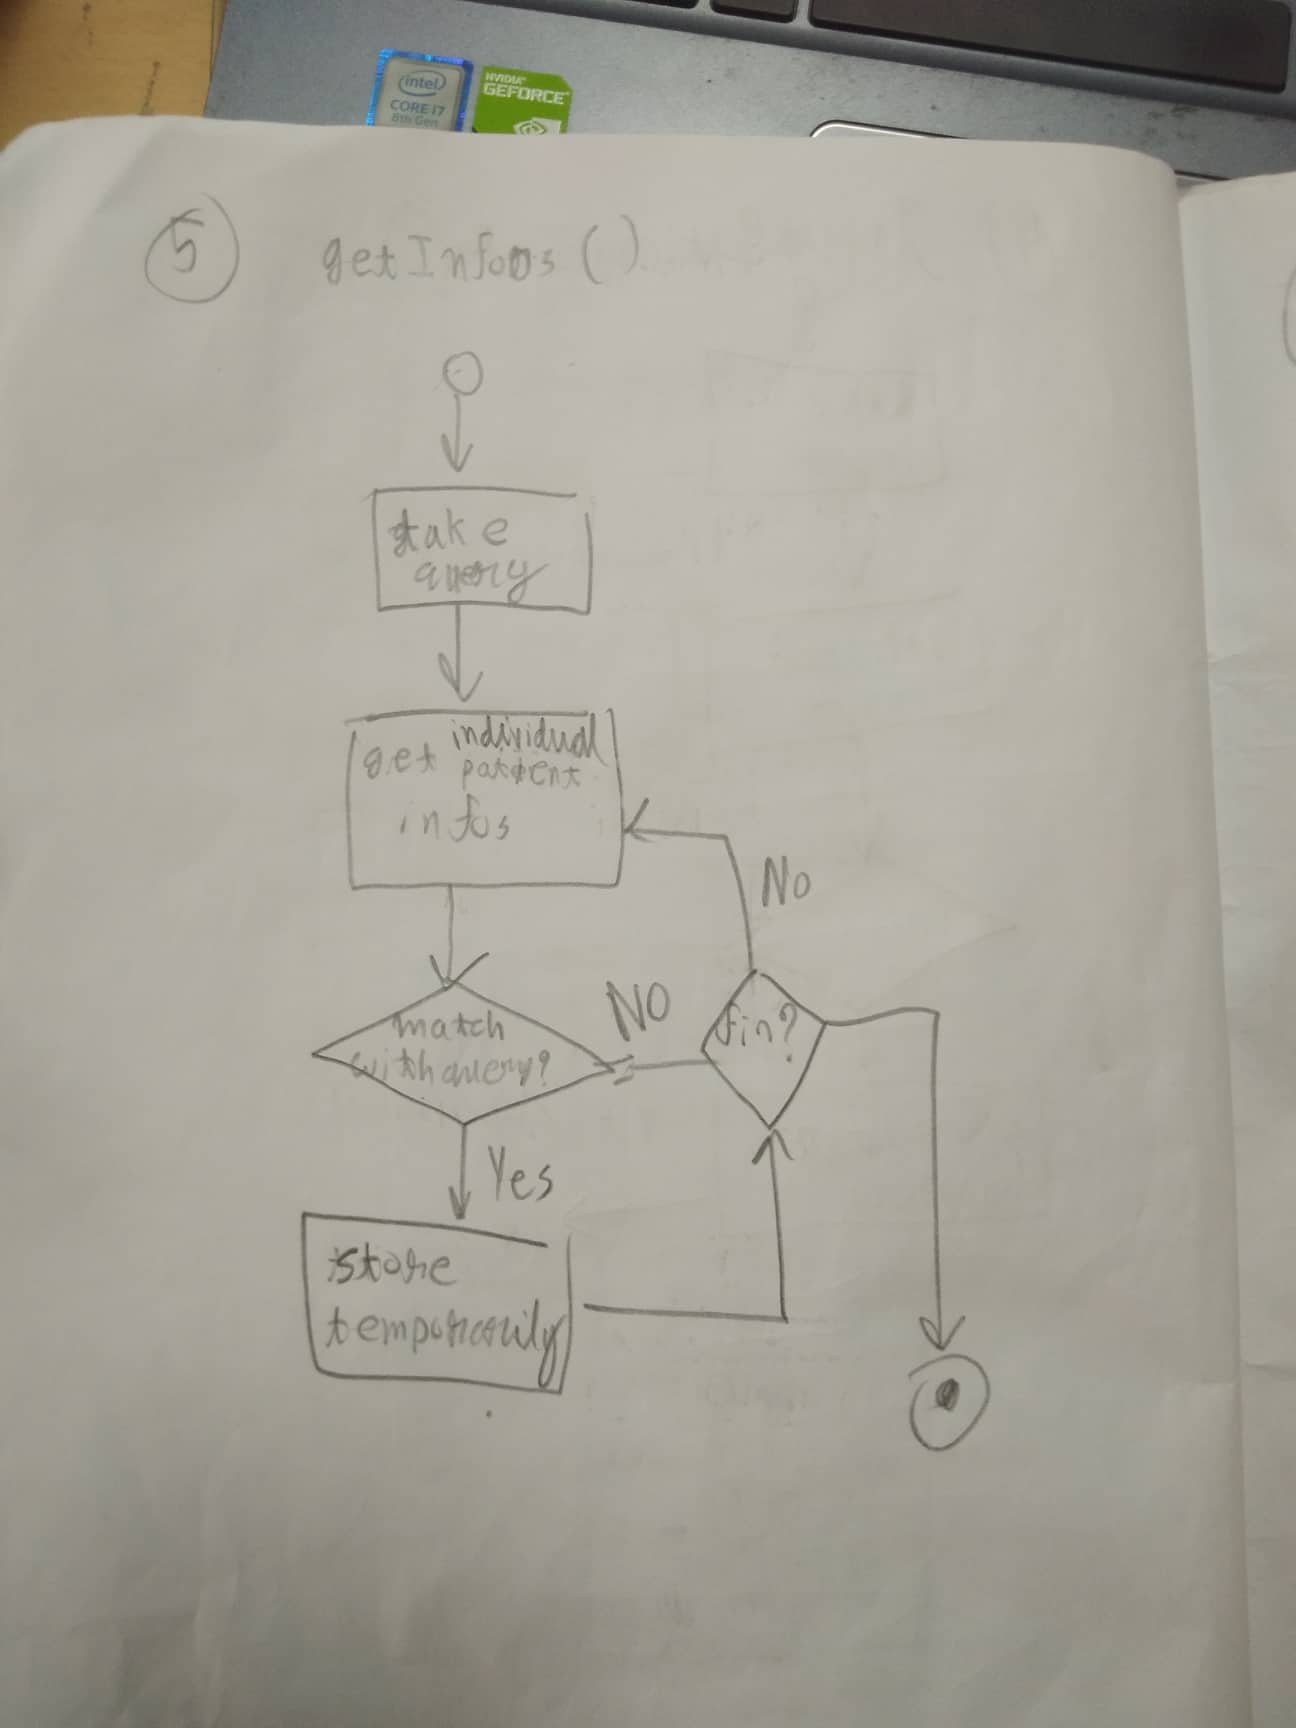 intel
CORE i7
8th Gen
NVIDIA
GEFORCE
5
getInfos ( )
take
query
get individual
patient
infos
No
match
with query?
NO
fin?
Yes
store
temporarily